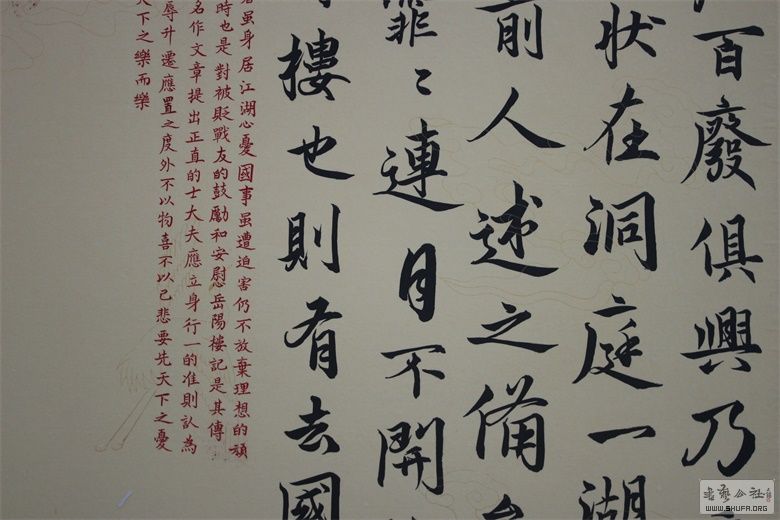 百廢俱興乃
狀在洞庭一湖
前人述之備
霏〻連月不開
樓也則有去國
虽身居江湖心憂國事虽遭迫害仍不放棄理想的頑
時也是對被貶戰友的鼓勵和安慰岳陽樓記是其傳
名作文章提出正直的士大夫應立身行一的准則認為
辱升遷應置之度外不以物喜不以己悲要先天下之憂
天下之樂而樂
書藝公社
WWW.SHUFA.ORG